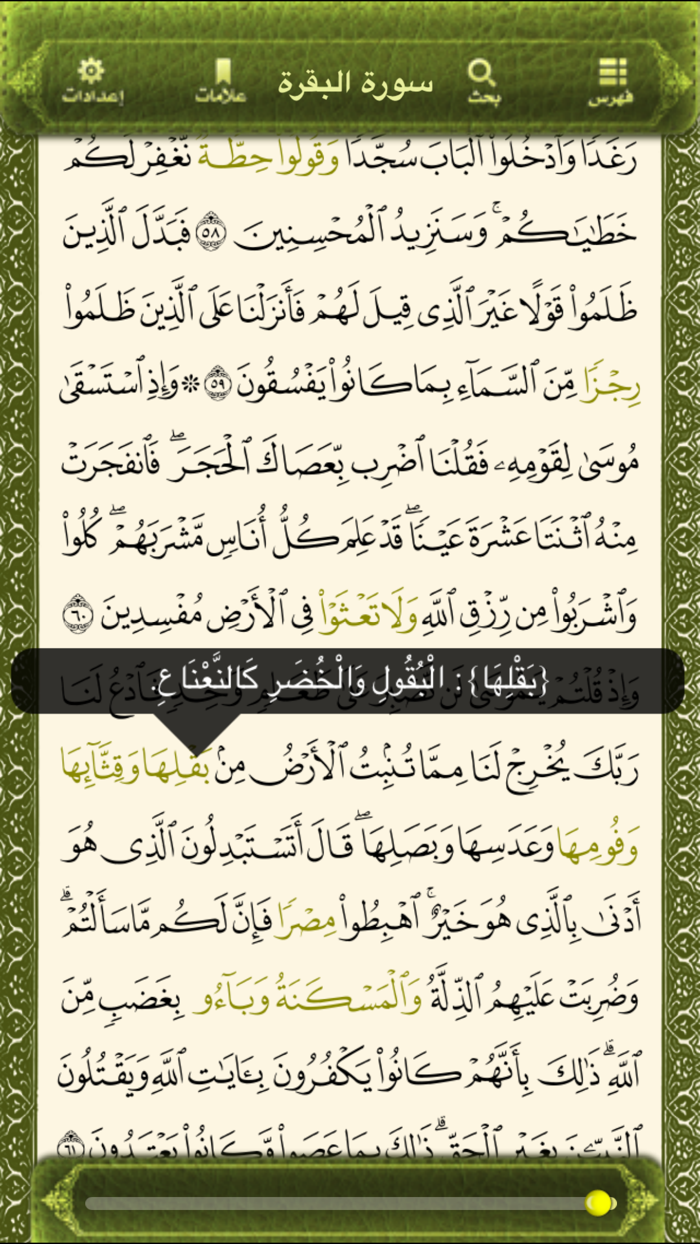 فهرس
بحث
سورة البقرة
علامات
إعدادات
رَغَدًا وَٱدۡخُلُواْ ٱلۡبَابَ سُجَّدٗا وَقُولُواْ حِطَّةٞ نَّغۡفِرۡ لَكُمۡ
خَطَٰيَٰكُمۡۚ وَسَنَزِيدُ ٱلۡمُحۡسِنِينَ ٥٨ فَبَدَّلَ ٱلَّذِينَ
ظَلَمُواْ قَوۡلًا غَيۡرَ ٱلَّذِي قِيلَ لَهُمۡ فَأَنزَلۡنَا عَلَى ٱلَّذِينَ ظَلَمُواْ
رِجۡزٗا مِّنَ ٱلسَّمَآءِ بِمَا كَانُواْ يَفۡسُقُونَ ٥٩ ۞ وَإِذِ ٱسۡتَسۡقَىٰ
مُوسَىٰ لِقَوۡمِهِۦ فَقُلۡنَا ٱضۡرِب بِّعَصَاكَ ٱلۡحَجَرَۖ فَٱنفَجَرَتۡ
مِنۡهُ ٱثۡنَتَا عَشۡرَةَ عَيۡنٗاۖ قَدۡ عَلِمَ كُلُّ أُنَاسٖ مَّشۡرَبَهُمۡۖ كُلُواْ
وَٱشۡرَبُواْ مِن رِّزۡقِ ٱللَّهِ وَلَا تَعۡثَوۡاْ فِي ٱلۡأَرۡضِ مُفۡسِدِينَ ٦٠
{بَقْلِهَا} : الْبُقُولِ وَالْخُضَرِ كَالنَّعْنَاعِ.
وَإِذۡ قُلۡتُمۡ يَٰمُوسَىٰ لَن نَّصۡبِرَ عَلَىٰ طَعَامٖ وَٰحِدٖ فَٱدۡعُ لَنَا
رَبَّكَ يُخۡرِجۡ لَنَا مِمَّا تُنۢبِتُ ٱلۡأَرۡضُ مِنۢ بَقۡلِهَا وَقِثَّآئِهَا
وَفُومِهَا وَعَدَسِهَا وَبَصَلِهَاۖ قَالَ أَتَسۡتَبۡدِلُونَ ٱلَّذِي هُوَ
أَدۡنَىٰ بِٱلَّذِي هُوَ خَيۡرٌۚ ٱهۡبِطُواْ مِصۡرٗا فَإِنَّ لَكُم مَّا سَأَلۡتُمۡۗ
وَضُرِبَتۡ عَلَيۡهِمُ ٱلذِّلَّةُ وَٱلۡمَسۡكَنَةُ وَبَآءُو بِغَضَبٖ مِّنَ
ٱللَّهِۗ ذَٰلِكَ بِأَنَّهُمۡ كَانُواْ يَكۡفُرُونَ بِـَٔايَٰتِ ٱللَّهِ وَيَقۡتُلُونَ
ٱلنَّبِيِّـۧنَ بِغَيۡرِ ٱلۡحَقِّۗ ذَٰلِكَ بِمَا عَصَواْ وَّكَانُواْ يَعۡتَدُونَ ٦١